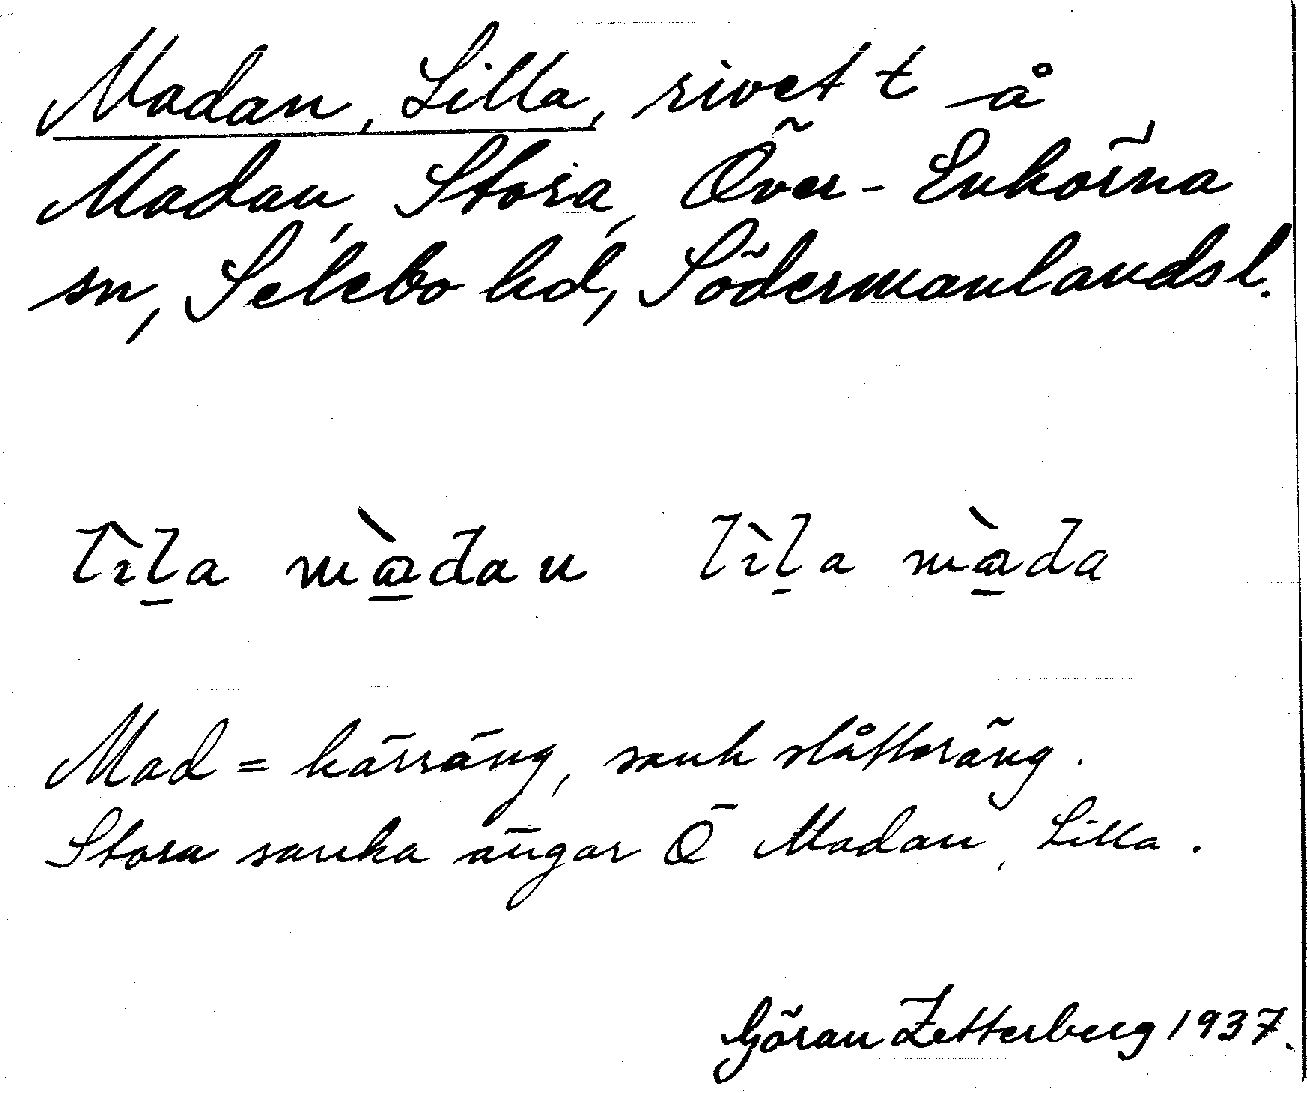 Madan, Lilla, rivet t å
Madan, Stora, Över-Enhörna
sn, Selebo hd, Södermanlandsl.
lìl̲a mà̲dan lìl̲a mà̲da
Mad = kärräng, sank slåtteräng.
Stora sanka ängar Ö Madan, Lilla.
Göran Zetterberg 1937.